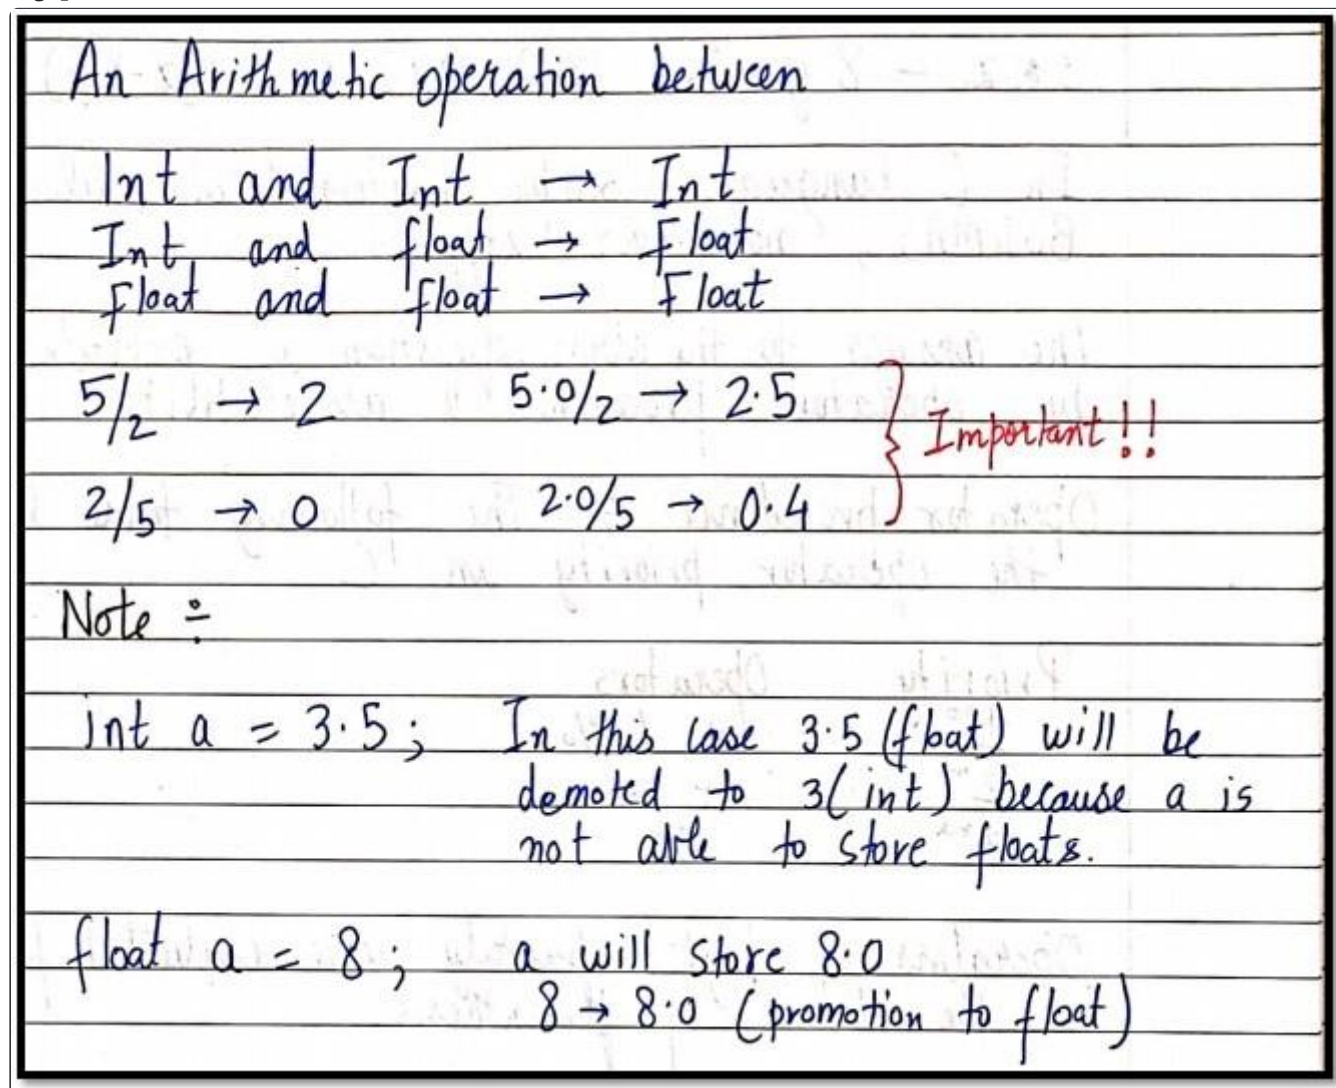 An Arithmetic operation between
Int and Int → Int
Int and float → Float
Float and float → Float
5/2 → 2 5.0/2 → 2.5
Important!!
2/5 → 0 2.0/5 → 0.4
Note ÷
int a = 3.5; In this case 3.5 (float) will be
demoted to 3(int) because a is
not able to store floats.
float a = 8; a will store 8.0
8 → 8.0 (promotion to float)